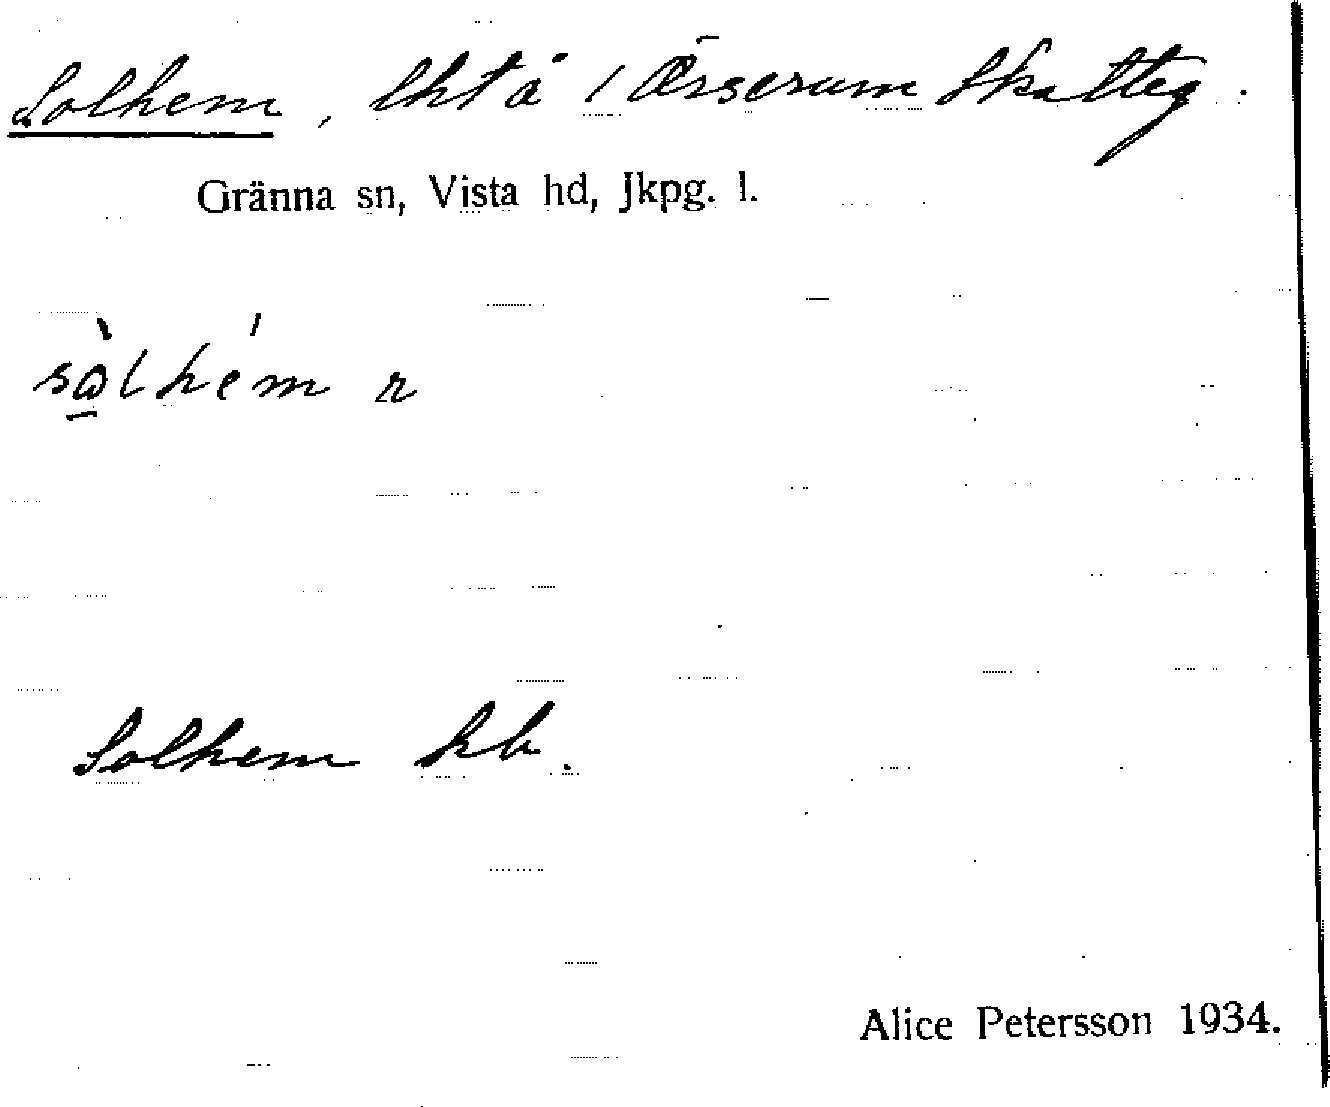 Solhem, lht å 1 Örserum Skatteg.
Gränna sn, Vista hd, Jkpg. l.
sòlhém r
Solhem hb.
Alice Petersson 1934.